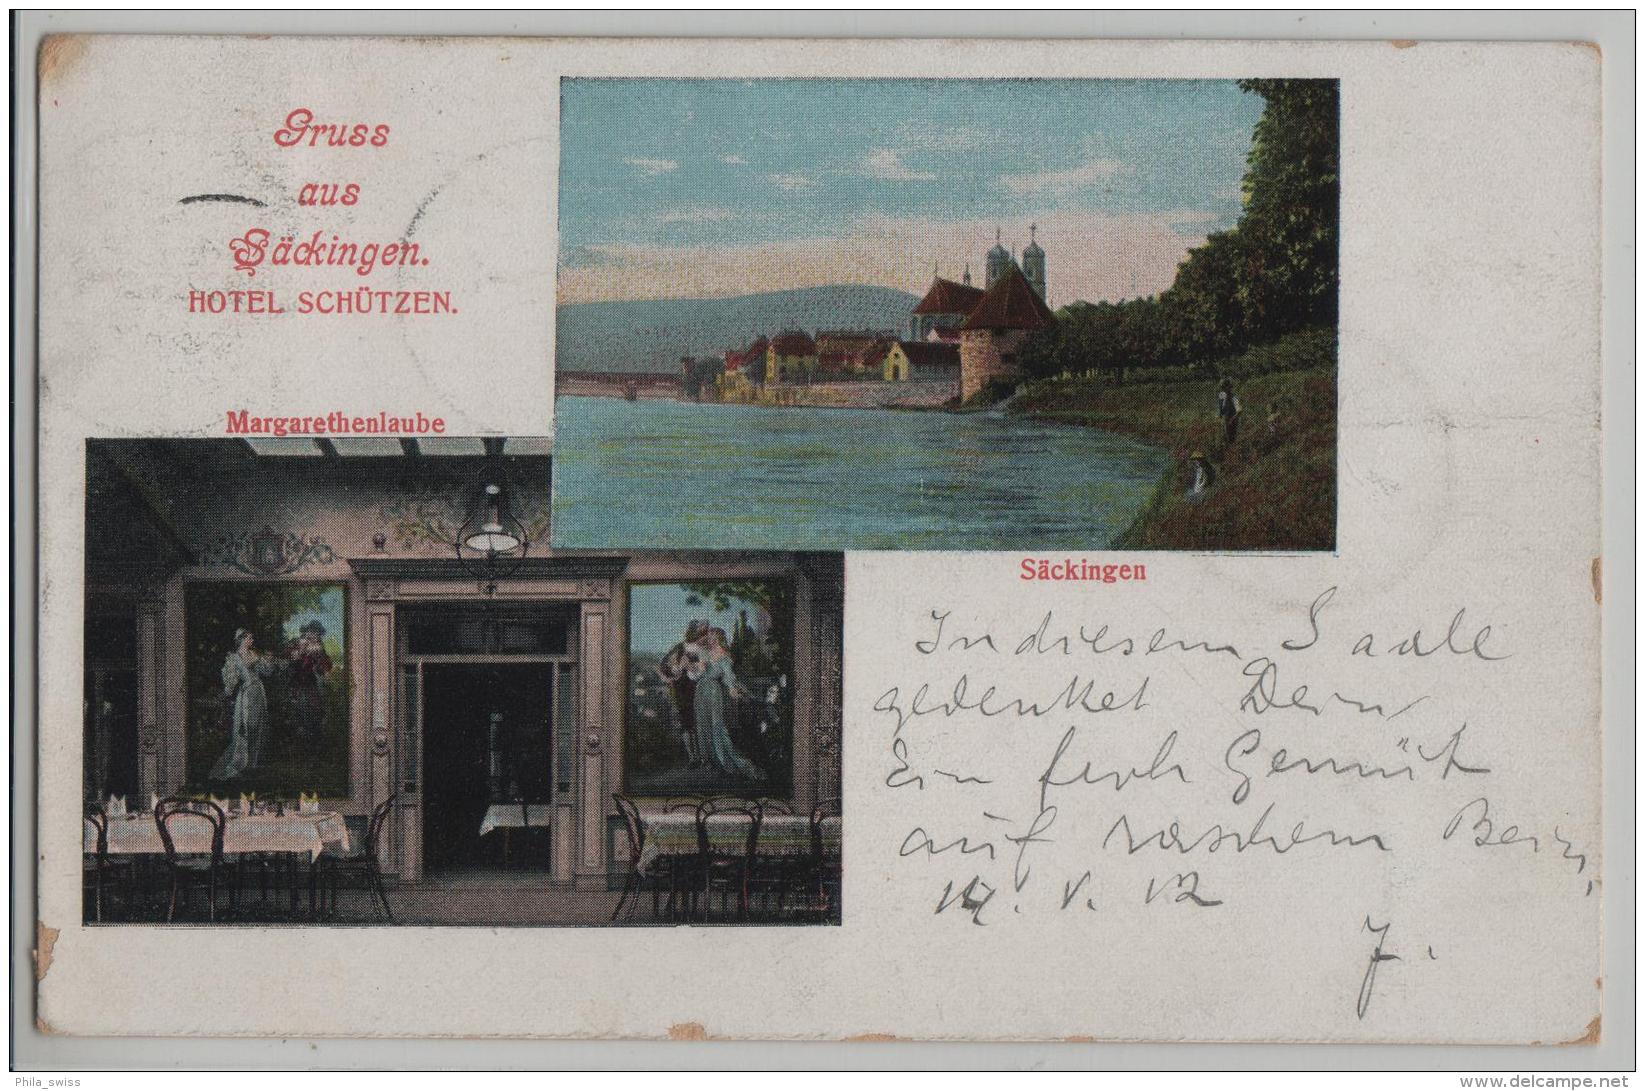 Gruss
aus
Säckingen.
HOTEL SCHÜTZEN.
Margarethenlaube
Säckingen
In diesem Saale
gedenket Dein
Ein froh Gemüt
auf raschem Bein,
14. V. 12
J.
Phila_swiss
www.delcampe.net